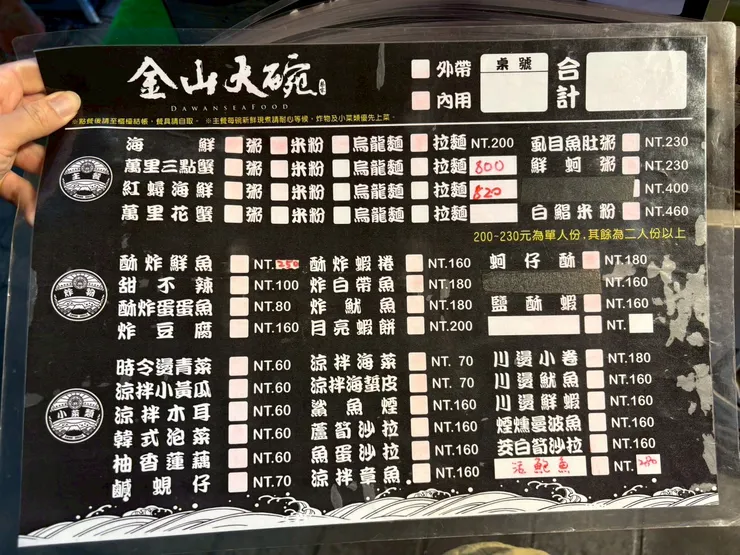 金山大碗
DAWANSEAFOOD
外帶
內用
桌號
合計
※點餐後請至櫃檯結帳，餐具請自取。 ※主餐每碗新鮮現煮請耐心等候，炸物及小菜類優先上菜。
主餐
海鮮 粥 米粉 烏龍麵 拉麵 NT.200 虱目魚肚粥 NT.230
萬里三點蟹 粥 米粉 烏龍麵 拉麵 800 鮮蚵粥 NT.230
紅蟳海鮮 粥 米粉 烏龍麵 拉麵 820 NT.400
萬里花蟹 粥 米粉 烏龍麵 拉麵 白鯧米粉 NT.460
200-230元為單人份，其餘為二人份以上
炸物
酥炸鮮魚 NT.250 酥炸蝦捲 NT.160 蚵仔酥 NT.180
甜不辣 NT.100 炸白帶魚 NT.160
酥炸蛋蛋魚 NT.80 炸魷魚 NT.180 鹽酥蝦 NT.160
炸豆腐 NT.160 月亮蝦餅 NT.200 NT.
小菜類
時令燙青菜 NT.60 涼拌海菜 NT.70 川燙小卷 NT.180
涼拌小黃瓜 NT.60 涼拌海蜇皮 NT.70 川燙魷魚 NT.160
涼拌木耳 NT.60 鯊魚煙 NT.160 川燙鮮蝦 NT.160
韓式泡菜 NT.60 蘆筍沙拉 NT.160 煙燻曼波魚 NT.160
柚香蓮藕 NT.60 魚蛋沙拉 NT.160 茭白筍沙拉 NT.160
鹹蜆仔 NT.70 涼拌章魚 NT.160 活鮑魚 NT.